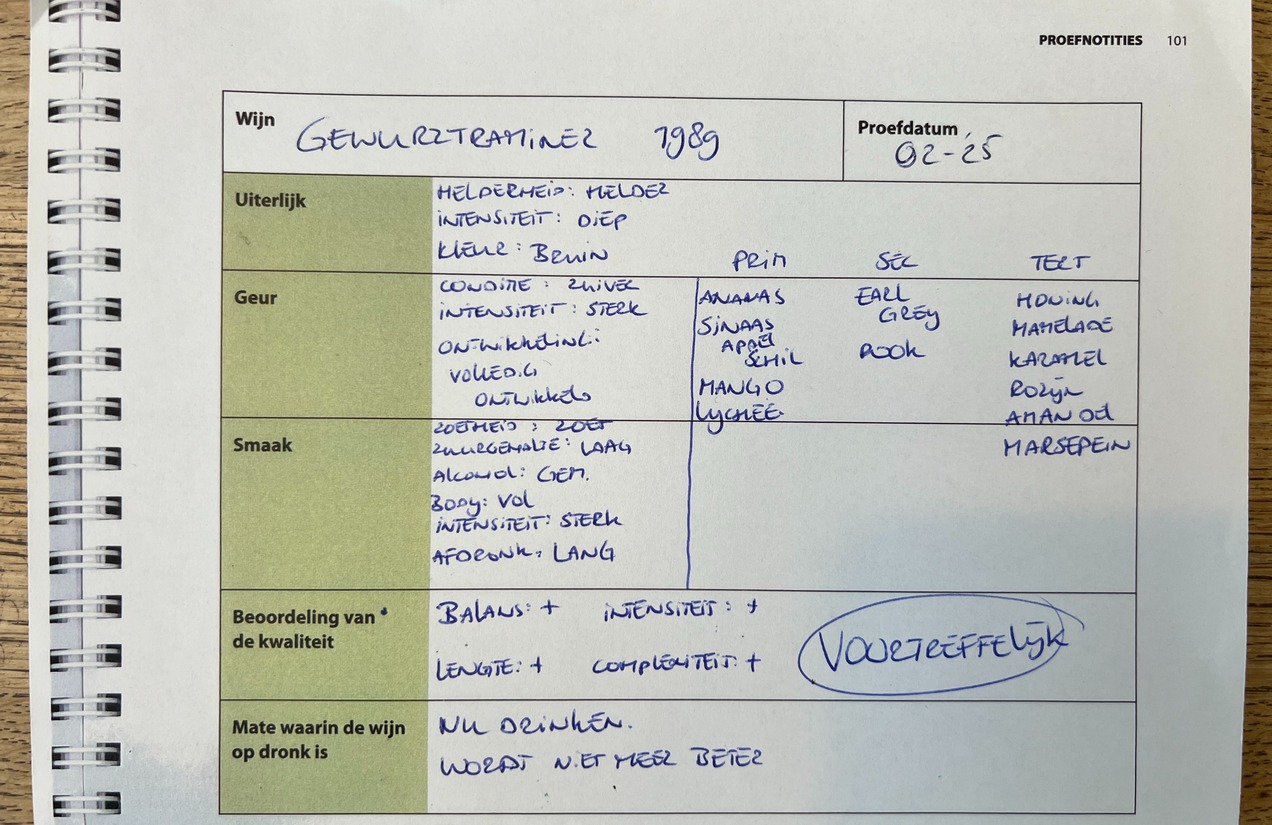 PROEFNOTITIES 101
Wijn GEWURZTRAMINER 1989
Proefdatum 02-25
Uiterlijk
HELDERHEID: HELDER
INTENSITEIT: DIEP
KLEUR: BRUIN
PRIM SEC TERT
Geur
CONDITIE: ZUIVER
INTENSITEIT: STERK
ONTWIKKELING:
VOLLEDIG
ONTWIKKELD
ANANAS
SINAAS
APPEL
SCHIL
MANGO
LYCHEE
EARL
GREY
ROOK
HONING
MAMELADE
KARAMEL
ROZIJN
AMANDEL
MARSEPEIN
Smaak
ZOETHEID: ZOET
ZUURGEHALTE: LAAG
ALCOHOL: GEM.
BODY: VOL
INTENSITEIT: STERK
AFDRONK: LANG
Beoordeling van
de kwaliteit
BALANS: + INTENSITEIT: +
LENGTE: + COMPLEXITEIT: +
VOORTREFFELIJK
Mate waarin de wijn
op dronk is
NU DRINKEN.
WORDT NIET MEER BETER